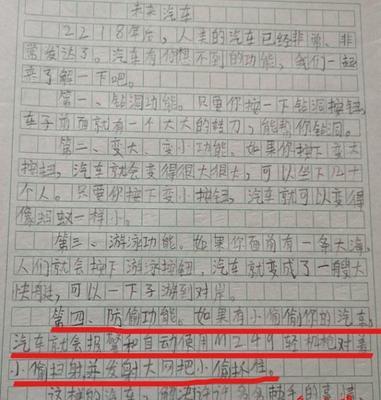 未来汽车
2218年后，人类的汽车已经非常、非
常发达了。汽车有你想不到的功能，我们一起
来了解一下吧。
第一、钻洞功能。只要你按一下钻洞按钮，
车子前面就有一个大大的转刀，能帮你钻洞。
第二、变大、变小功能。如果你按下变大
按钮，汽车就会变得很大很大，可以坐下几十
个人。只要你按下变小按钮，汽车就可以变得
像蚂蚁一样小。
第三、游泳功能。如果你面前有一条大海，
人们就会按下游泳按钮，汽车就变成了一艘大
快艇，可以一下子游到对岸。
第四、防偷功能。如果有小偷偷你的汽车，
汽车就会报警和自动使用M249轻机枪对着
小偷扫射并发射大网把小偷抓住。
这样的汽车，解决许许多多棘手的事情，